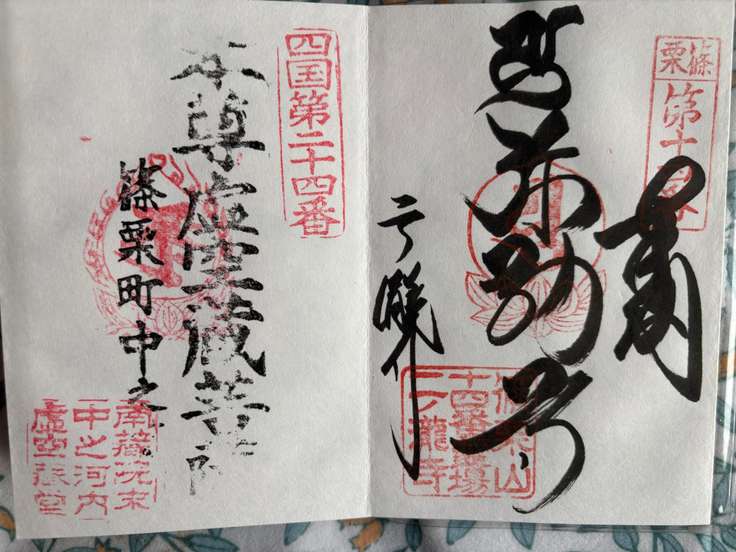 篠栗
第十四番
奉拝
二ノ瀧寺
篠栗山
十四番霊場
二ノ瀧寺
四国第二十四番
本尊虚空蔵菩薩
篠栗町中之
南蔵院末
中之河内
虚空蔵堂